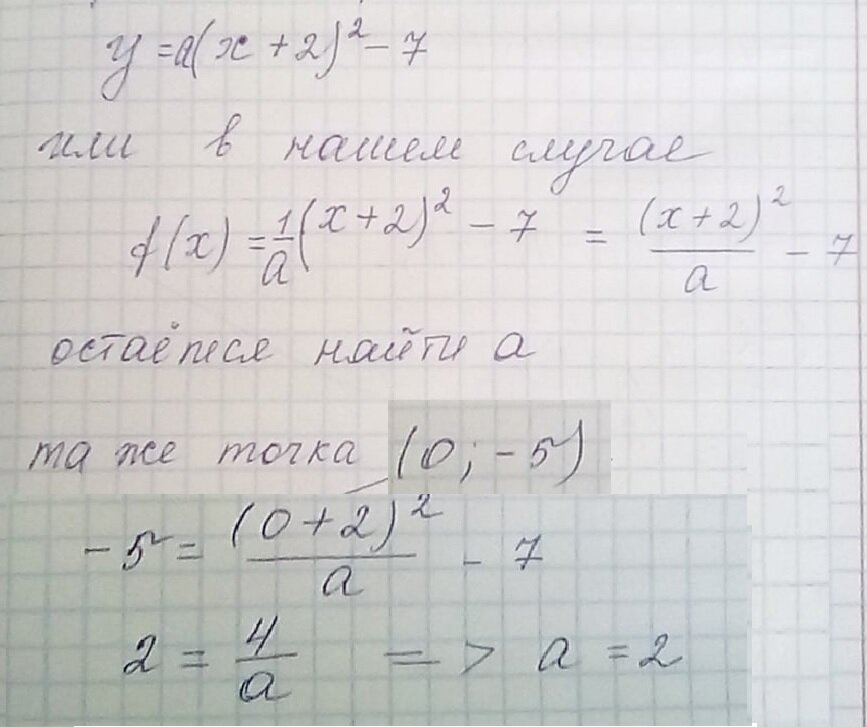 y = a(x + 2)² - 7
или в нашем случае
f(x) = 1/a (x + 2)² - 7 = (x + 2)²/a - 7
остаётся найти a
та же точка (0; -5)
-5 = (0 + 2)²/a - 7
2 = 4/a => a = 2